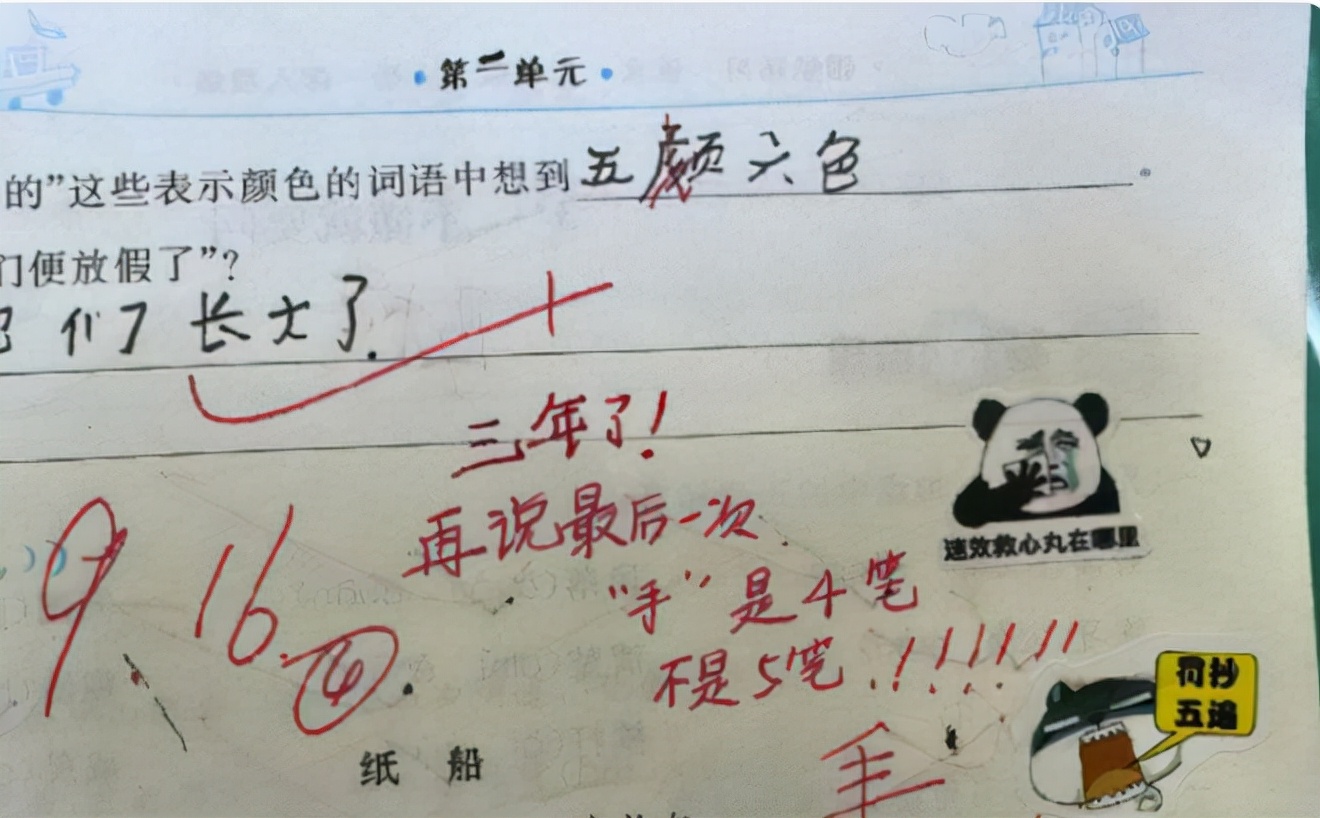 第二单元
的”这些表示颜色的词语中想到五颜六色。
们便放假了”？
们了长大了.
三年了！
再说最后一次.
速效救心丸在哪里
“手”是4笔
不是5笔.！！！！！！
9. 16. ④
罚抄
五遍
纸 船